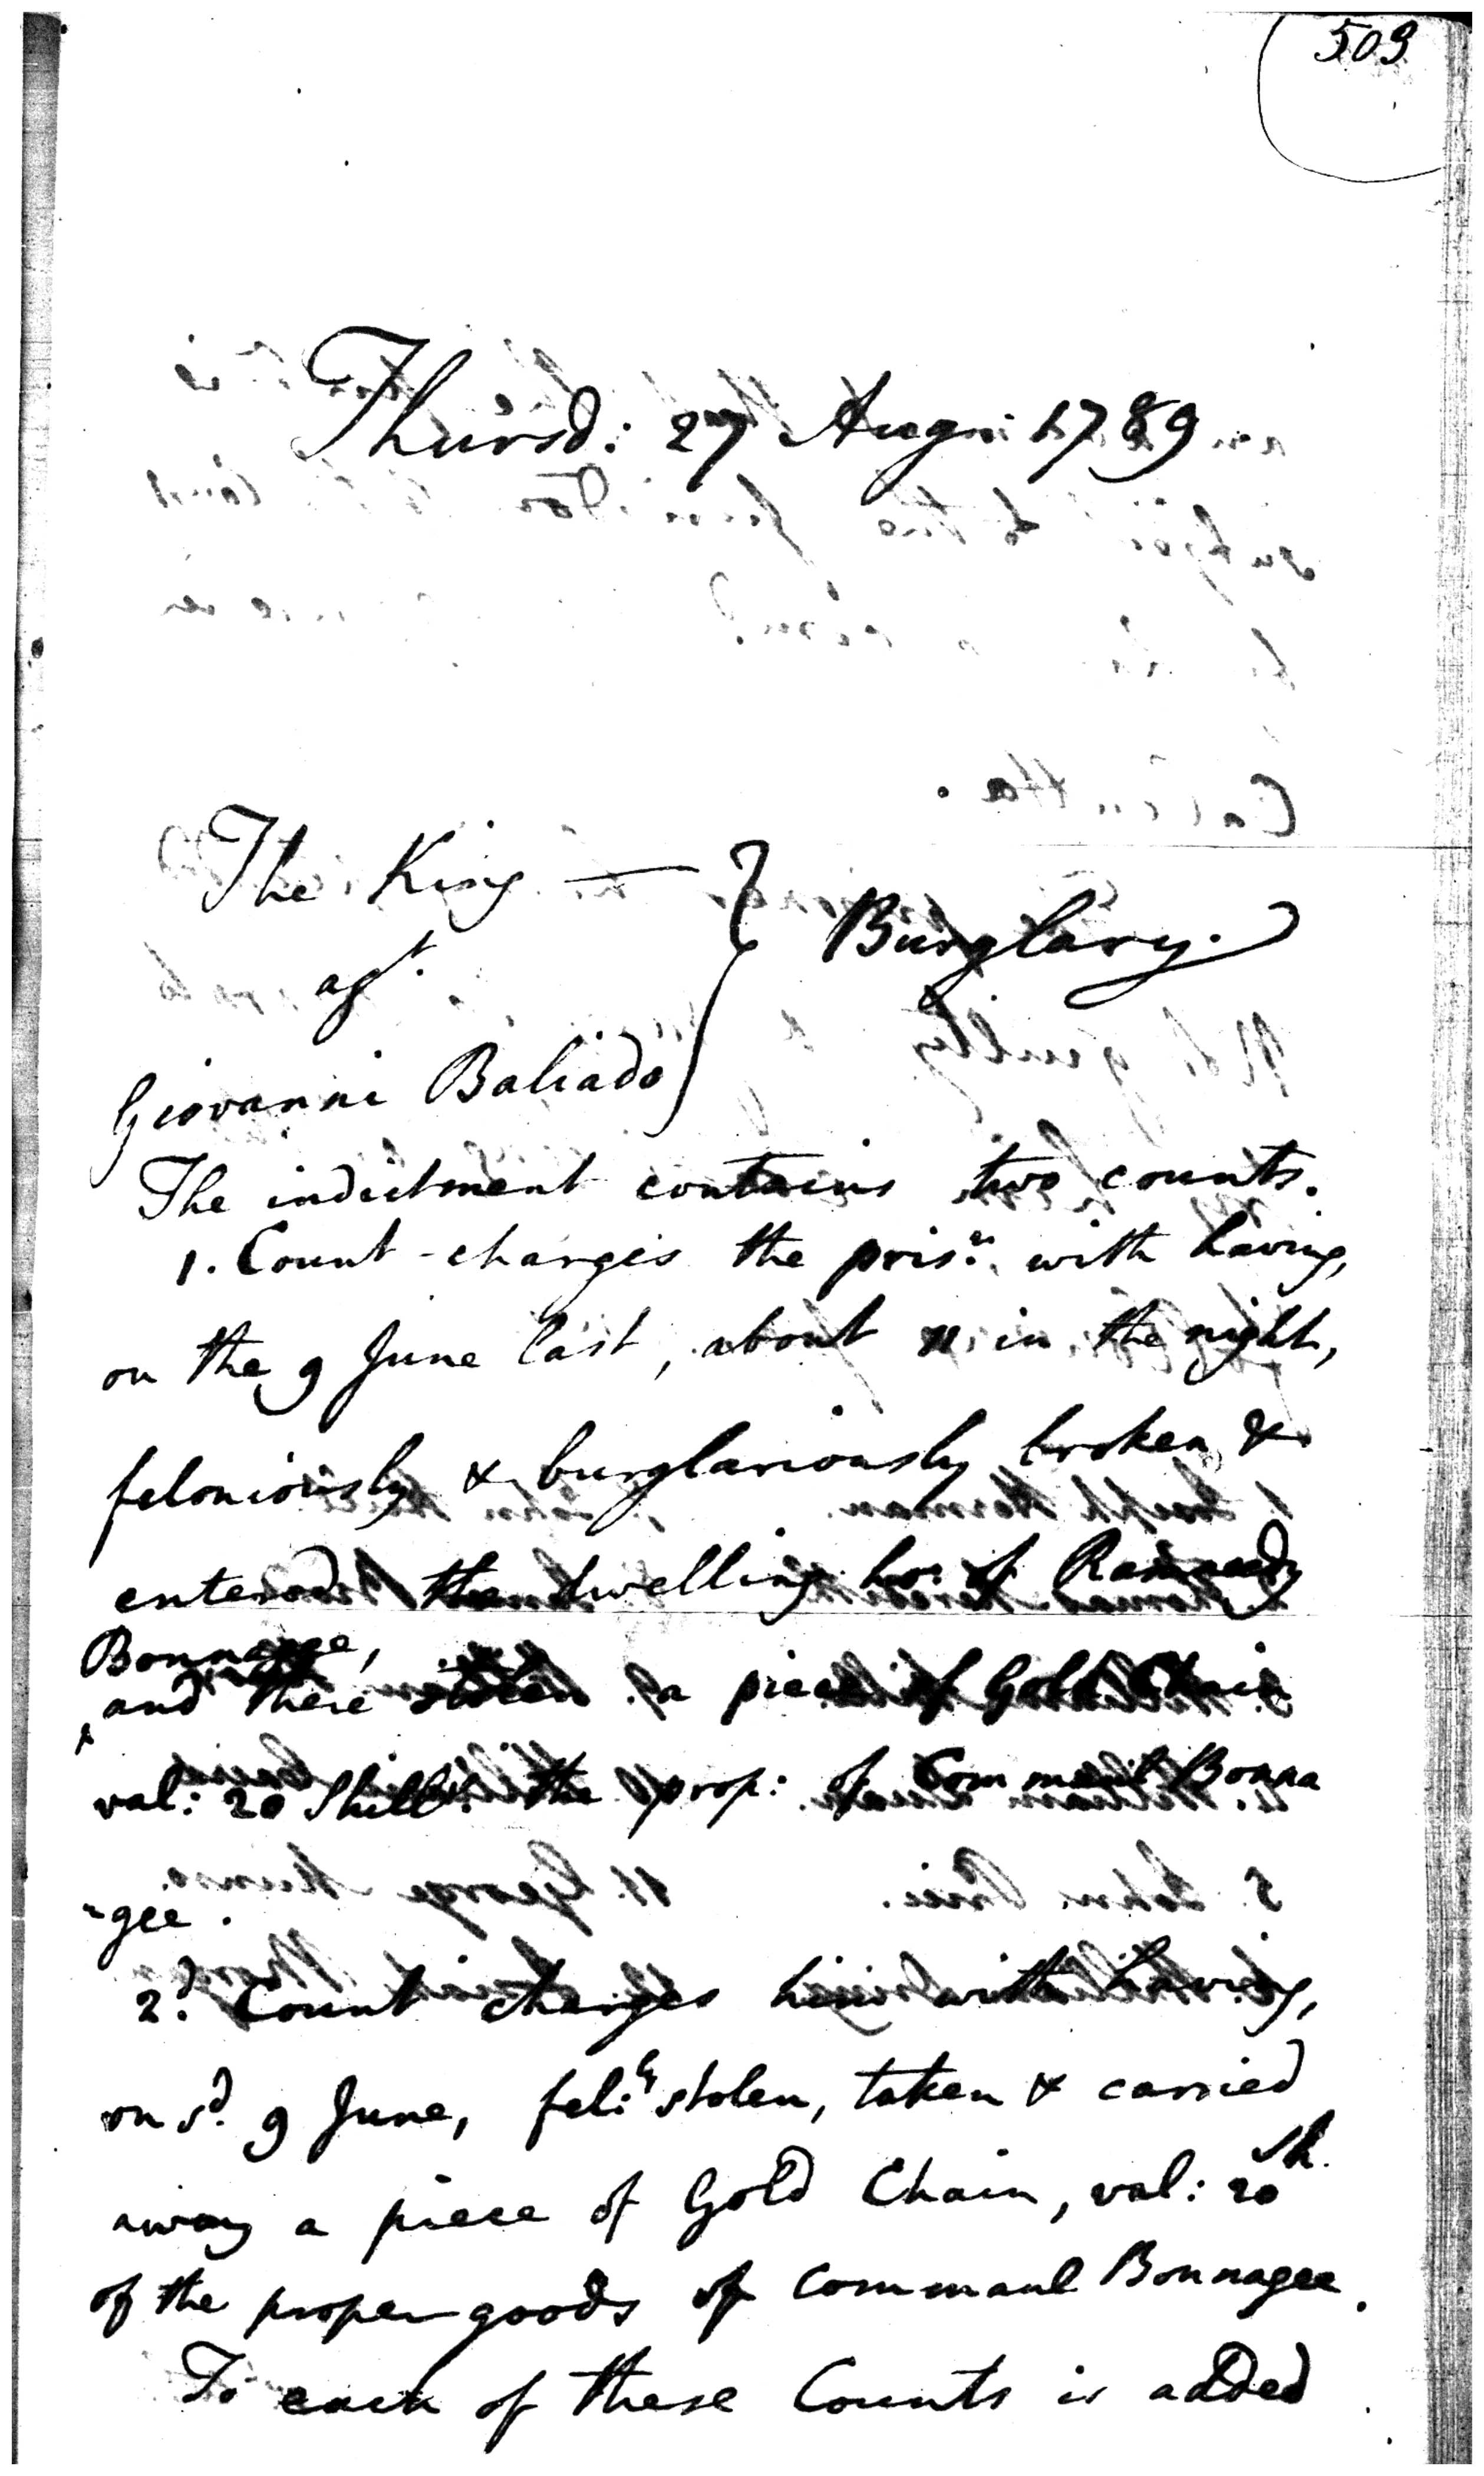 509
Thursd: 27 Aug: 1789
The King —
agt.
Burglary.
Giovanni Baliado
The indictment contains two counts.
1. Count - charges the prisr. with having,
on the 9 June last, about 11 in the night,
feloniously & burglariously broken &
entered the dwelling ho: of
Bonnagee,
and there stolen a piece of Gold Chain
val: 20 Shills. the prop: of Commaul Bonna
-gee.
2d. Count charges him with having,
on sd. 9 June, feli:ly stolen, taken & carried
away a piece of Gold Chain, val: 20 Sh.
of the proper goods of Commaul Bonnagee.
To each of these Counts is added